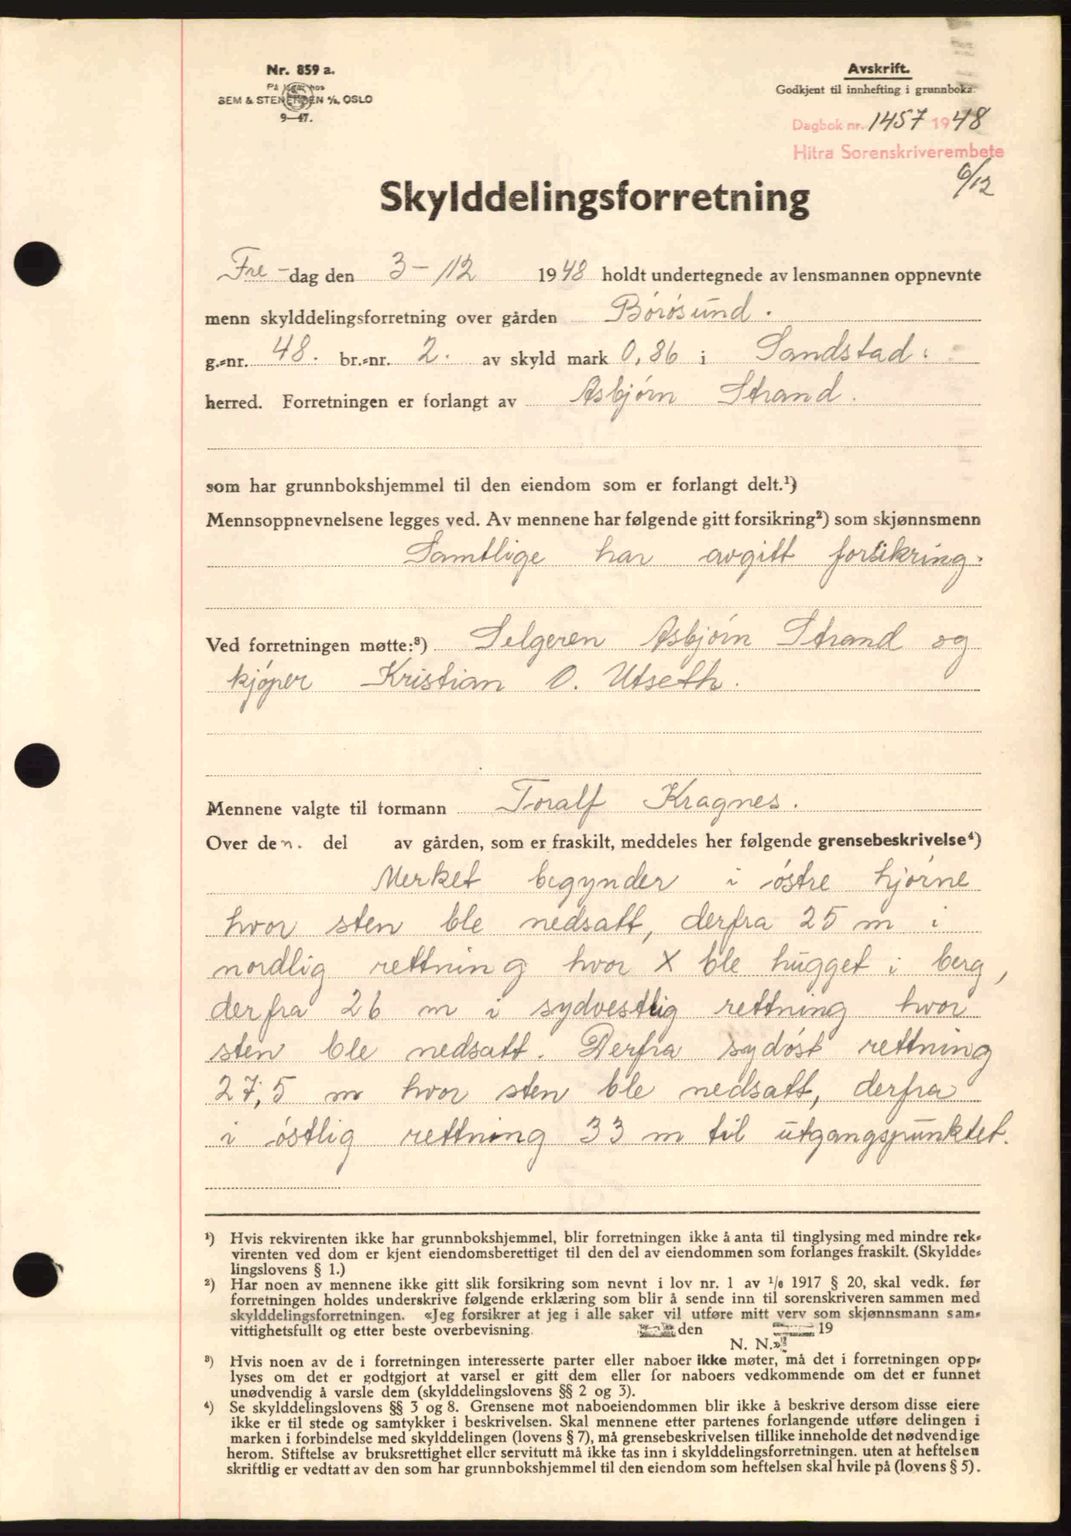 Nr. 859 a.
På lager hos
SEM & STENERSEN A/S, OSLO
9—47.
Avskrift.
Godkjent til innhefting i grunnboka.
Dagbok nr. 1457 1948
Hitra Sorenskriverembete
6/12
Skylddelingsforretning
Fre-dag den 3-/12 1948 holdt undertegnede av lensmannen oppnevnte
menn skylddelingsforretning over gården Børøsund.
g.-nr. 48. br.-nr. 2. av skyld mark 0,86 i Sandstad.
herred. Forretningen er forlangt av Asbjørn Strand.
som har grunnbokshjemmel til den eiendom som er forlangt delt.¹)
Mennsoppnevnelsene legges ved. Av mennene har følgende gitt forsikring²) som skjønnsmenn
Samtlige har avgitt forsikring.
Ved forretningen møtte:³) Selgeren Asbjørn Strand og
kjøper Kristian O. Utseth.
Mennene valgte til formann Toralf Kragnes.
Over den. del av gården, som er fraskilt, meddeles her følgende grensebeskrivelse⁴)
Merket begynder i østre hjørne
hvor sten ble nedsatt, derfra 25 m i
nordlig rettning hvor X ble hugget i berg,
derfra 26 m i sydvestlig rettning hvor
sten ble nedsatt. Derfra sydøst rettning
27,5 m hvor sten ble nedsatt, derfra
i østlig rettning 33 m til utgangspunktet.
¹) Hvis rekvirenten ikke har grunnbokshjemmel, blir forretningen ikke å anta til tinglysing med mindre rek-
virenten ved dom er kjent eiendomsberettiget til den del av eiendommen som forlanges fraskilt. (Skyldde-
lingslovens § 1.)
²) Har noen av mennene ikke gitt slik forsikring som nevnt i lov nr. 1 av 1/6 1917 § 20, skal vedk. før
forretningen holdes underskrive følgende erklæring som blir å sende inn til sorenskriveren sammen med
skylddelingsforretningen. «Jeg forsikrer at jeg i alle saker vil utføre mitt verv som skjønnsmann sam-
vittighetsfullt og etter beste overbevisning. den 19
N. N.»
³) Hvis noen av de i forretningen interesserte parter eller naboer ikke møter, må det i forretningen opp-
lyses om det er godtgjort at varsel er gitt dem eller for naboers vedkommende om det er funnet
unødvendig å varsle dem (skylddelingslovens §§ 2 og 3).
⁴) Se skylddelingslovens §§ 3 og 8. Grensene mot naboeiendommen blir ikke å beskrive dersom disse eiere
ikke er til stede og samtykker i beskrivelsen. Skal mennene etter partenes forlangende utføre delingen i
marken i forbindelse med skylddelingen (lovens § 7), må grensebeskrivelsen tillike inneholde det nødvendige
herom. Stiftelse av bruksrettighet eller servitutt må ikke tas inn i skylddelingsforretningen. uten at heftelsen
skriftlig er vedtatt av den som har grunnbokshjemmel til den eiendom som heftelsen skal hvile på (lovens § 5).